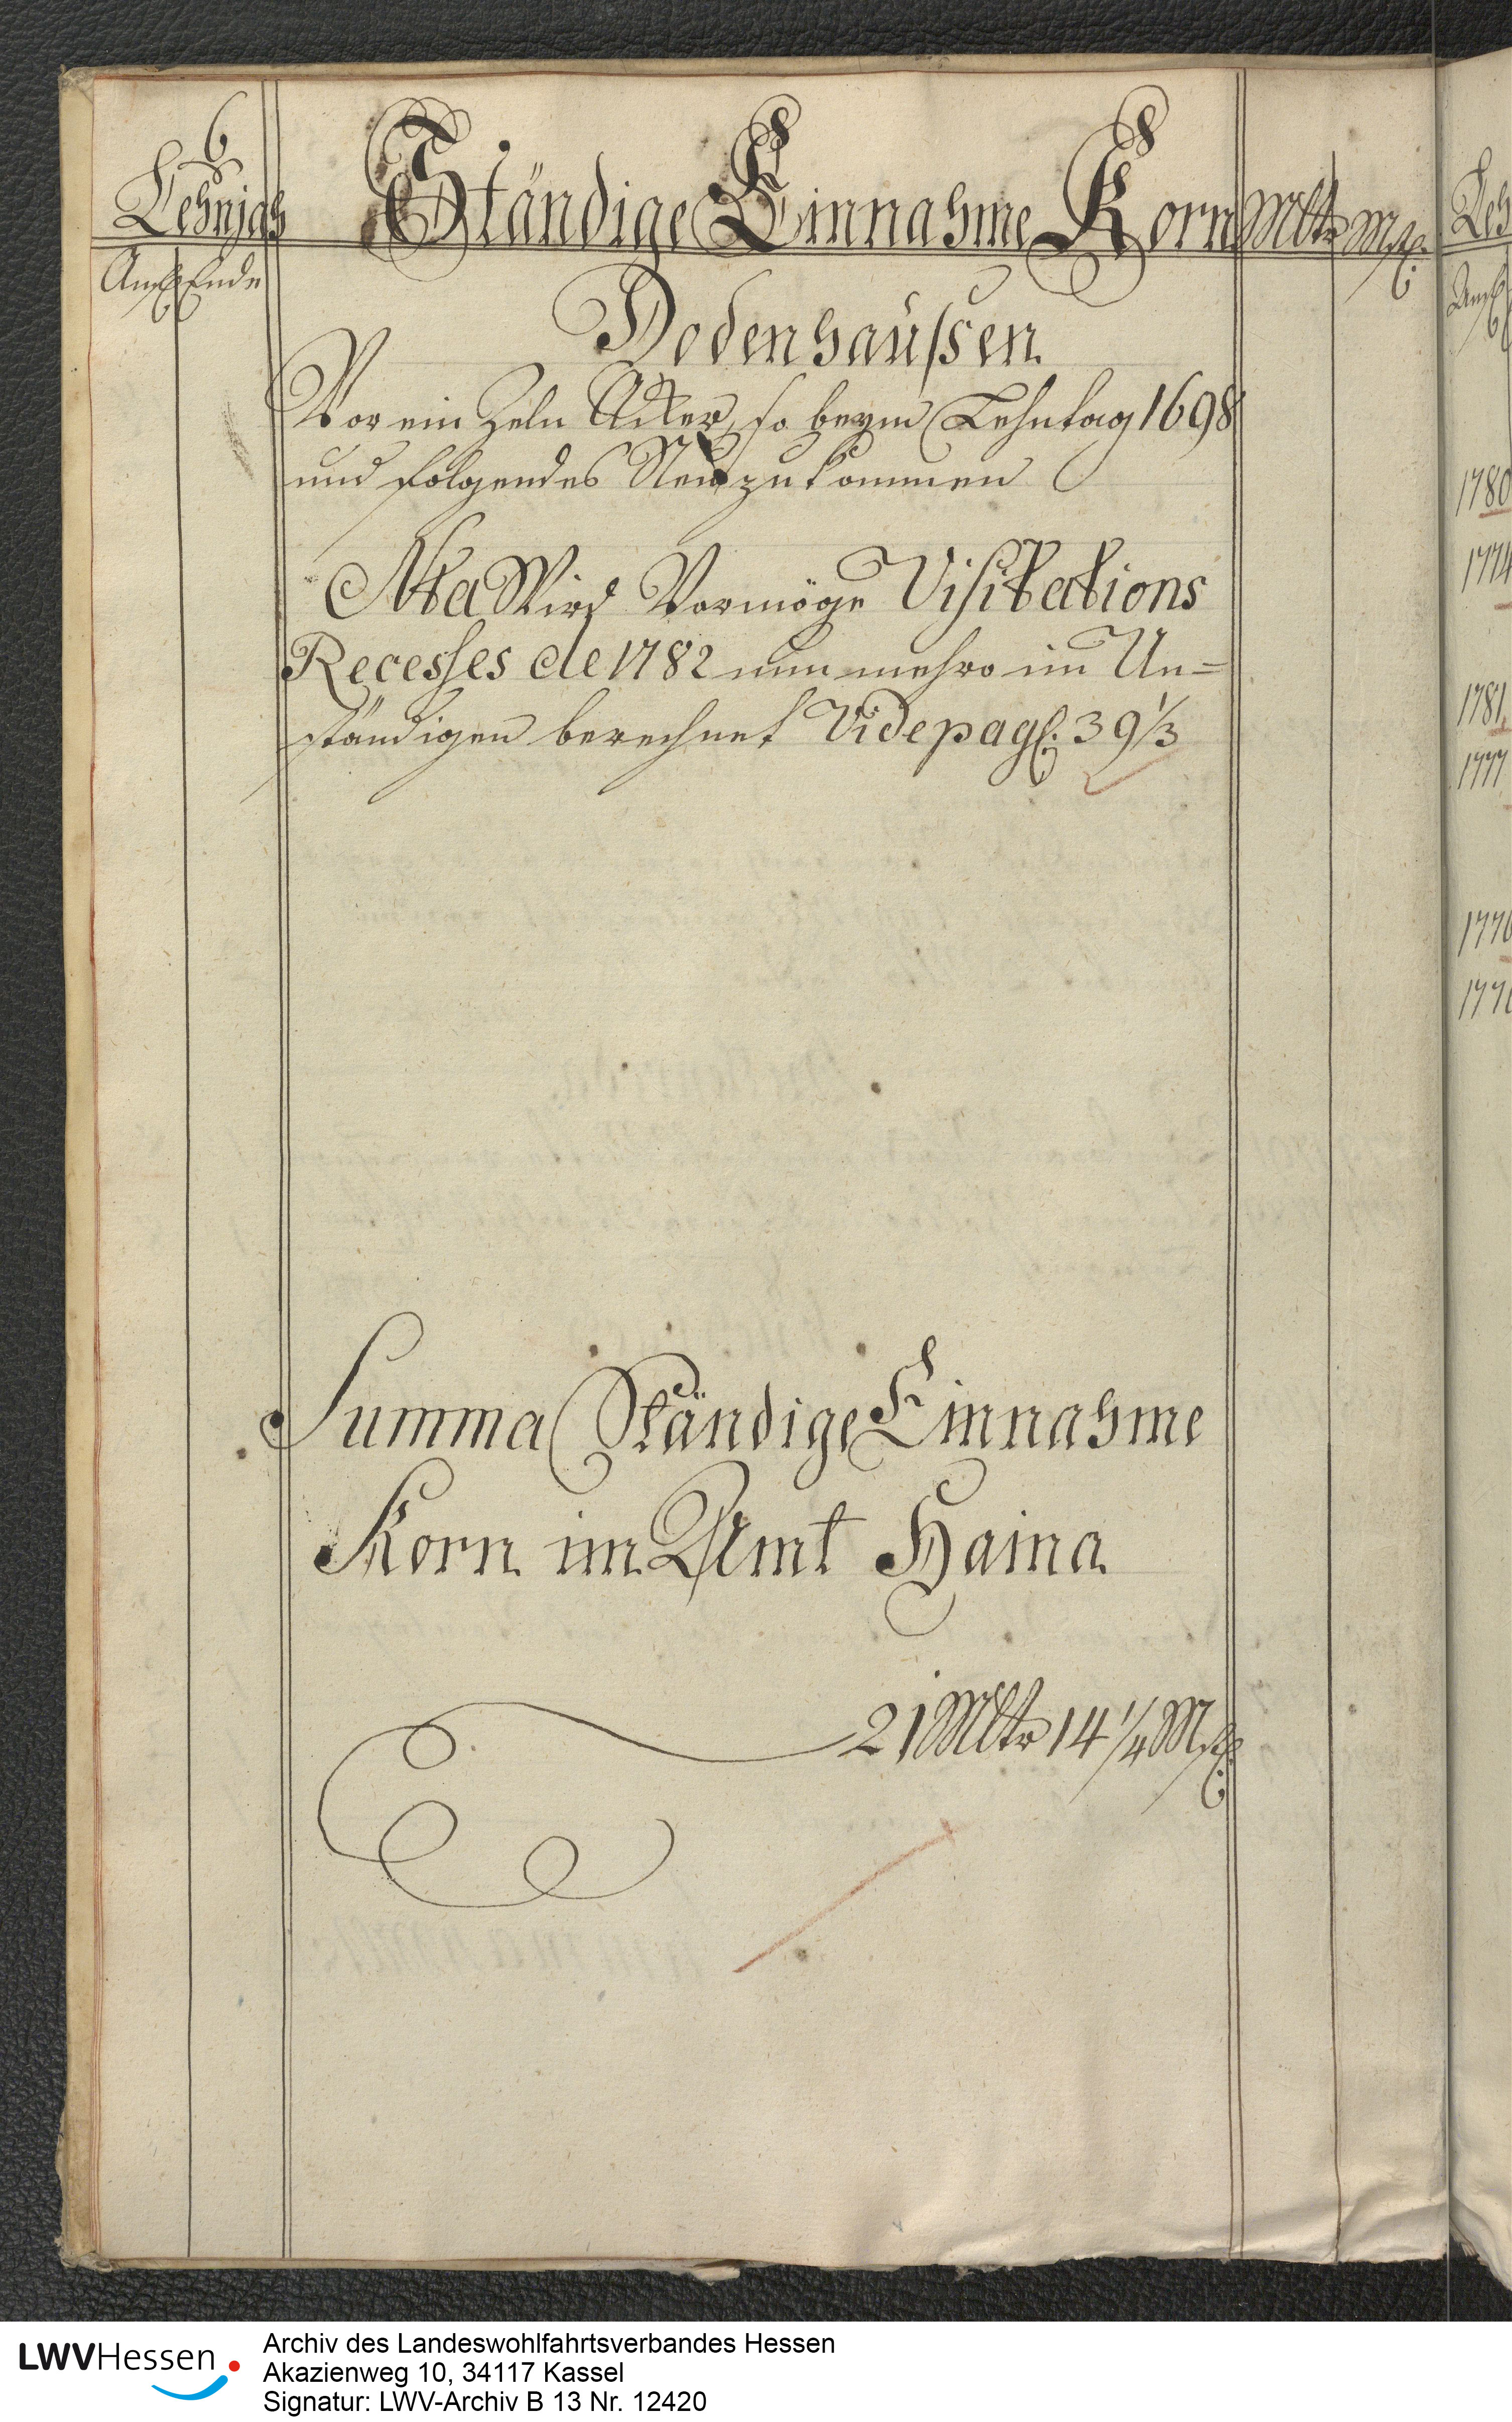 6
Lehnjah Ständige Einnahme Korn Mltr Mſt:
Anf: Ende
Dodenhaußen
Vor ein Zeln Acker, so beym Lehntag 1698
und folgendes Neu zukommen
Nta Wird Vermöge Visitations
Recesses de 1782 nunmehro im Un=
ständigen berechnet Vide pag: 39 1/3
Summa Ständige Einnahme
Korn im Amt Haina
21 Mltr 14 1/4 Mſt:
Leh
Anf
1780
1774
1781
1777
1776
LWVHessen
Archiv des Landeswohlfahrtsverbandes Hessen
Akazienweg 10, 34117 Kassel
Signatur: LWV-Archiv B 13 Nr. 12420